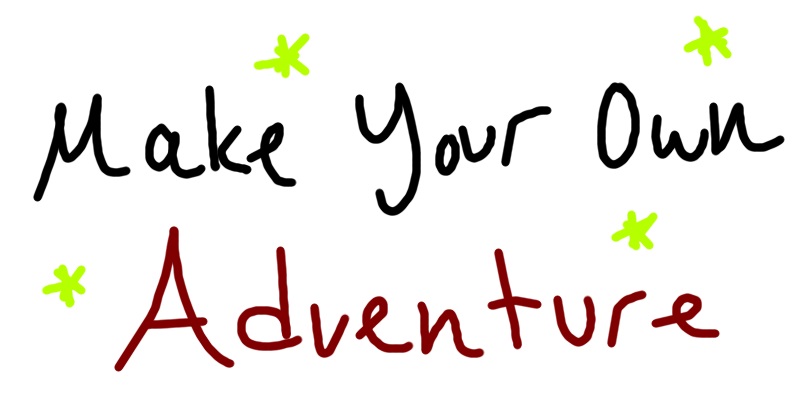 Make Your Own
Adventure